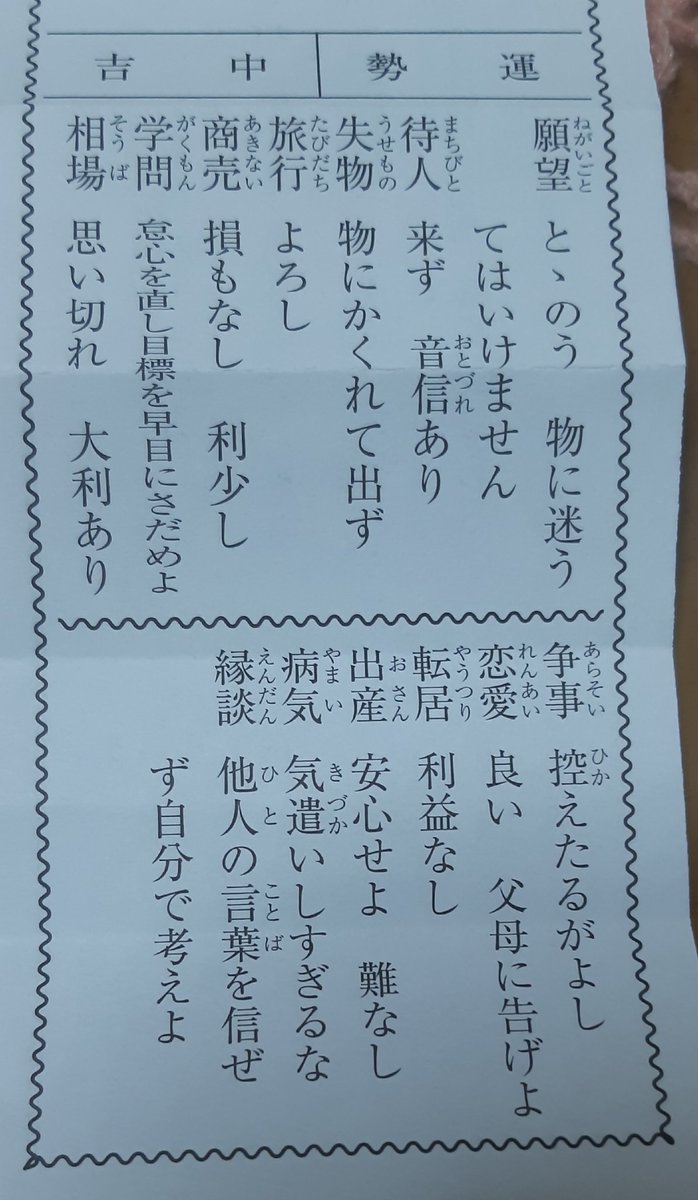 運勢 中吉
願望 ねがいごと とゝのう 物に迷う
てはいけません
待人 まちびと 来ず 音信あり おとづれ
失物 うせもの 物にかくれて出ず
旅行 たびだち よろし
商売 あきない 損もなし 利少し
学問 がくもん 怠心を直し目標を早目にさだめよ
相場 そうば 思い切れ 大利あり
争事 あらそい 控えたるがよし ひか
恋愛 れんあい 良い 父母に告げよ
転居 やうつり 利益なし
出産 おさん 安心せよ 難なし
病気 やまい 気遣いしすぎるな きづか
縁談 えんだん 他人の言葉を信ぜ ひと ことば
ず自分で考えよ